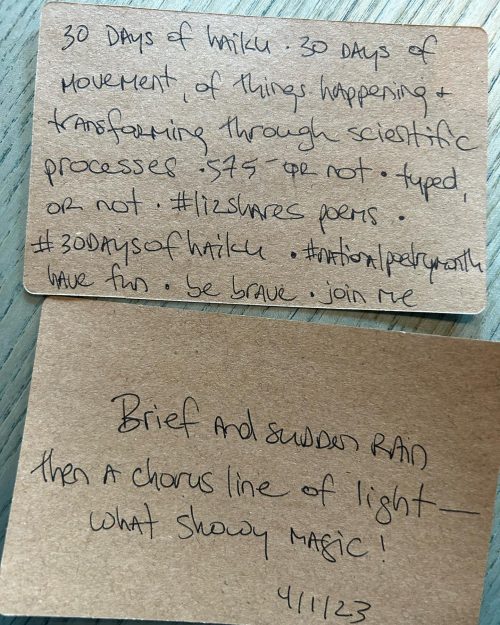 30 DAYS of haiku · 30 DAYS of
movement, of things happening +
transforming through scientific
processes · 575 - or not · typed,
or not · #lizshares poems ·
#30DAYSofhaiku · #nationalpoetrymonth
have fun · be brave · join me
Brief and sudden rain
then a chorus line of light—
what showy magic!
4/1/23